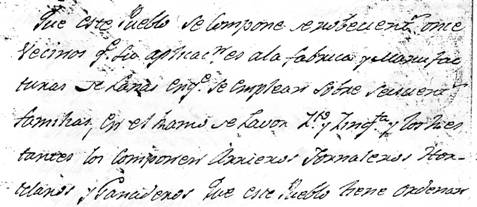 Que este Pueblo se compone se nobecient.s once
Vecinos q.e su aplicac.n es ala fabrica y Manufac
turas se Lanas en q.e se emplean sobre
familias, en el ramo se Lavor y los res
tantes los componen Arrieros Jornaleros Hor
telanos y Panaderos Que este Pueblo tiene ordenan